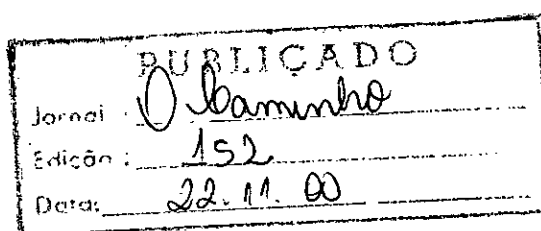 PUBLICADO
Jornal : O Caminho
Edição : 152
Data: 22.11.00